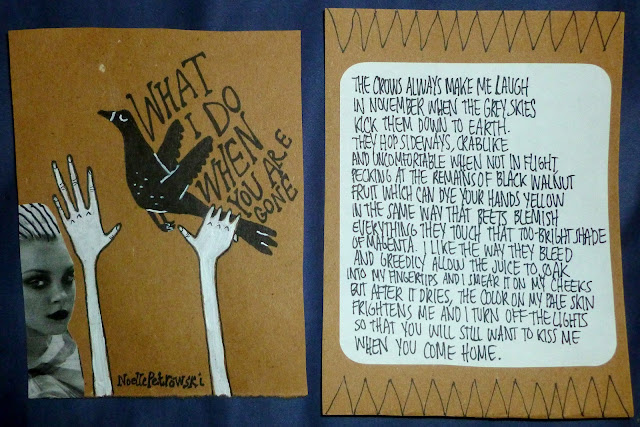 WHAT
I DO
WHEN
YOU ARE
GONE
Noelle Petrowski
THE CROWS ALWAYS MAKE ME LAUGH
IN NOVEMBER WHEN THE GREY SKIES
KICK THEM DOWN TO EARTH.
THEY HOP SIDEWAYS, CRABLIKE
AND UNCOMFORTABLE WHEN NOT IN FLIGHT,
PECKING AT THE REMAINS OF BLACK WALNUT
FRUIT WHICH CAN DYE YOUR HANDS YELLOW
IN THE SAME WAY THAT BEETS BLEMISH
EVERYTHING THEY TOUCH THAT TOO-BRIGHT SHADE
OF MAGENTA. I LIKE THE WAY THEY BLEED
AND GREEDILY ALLOW THE JUICE TO SOAK
INTO MY FINGERTIPS AND I SMEAR IT ON MY CHEEKS
BUT AFTER IT DRIES, THE COLOR ON MY PALE SKIN
FRIGHTENS ME AND I TURN OFF THE LIGHTS
SO THAT YOU WILL STILL WANT TO KISS ME
WHEN YOU COME HOME.